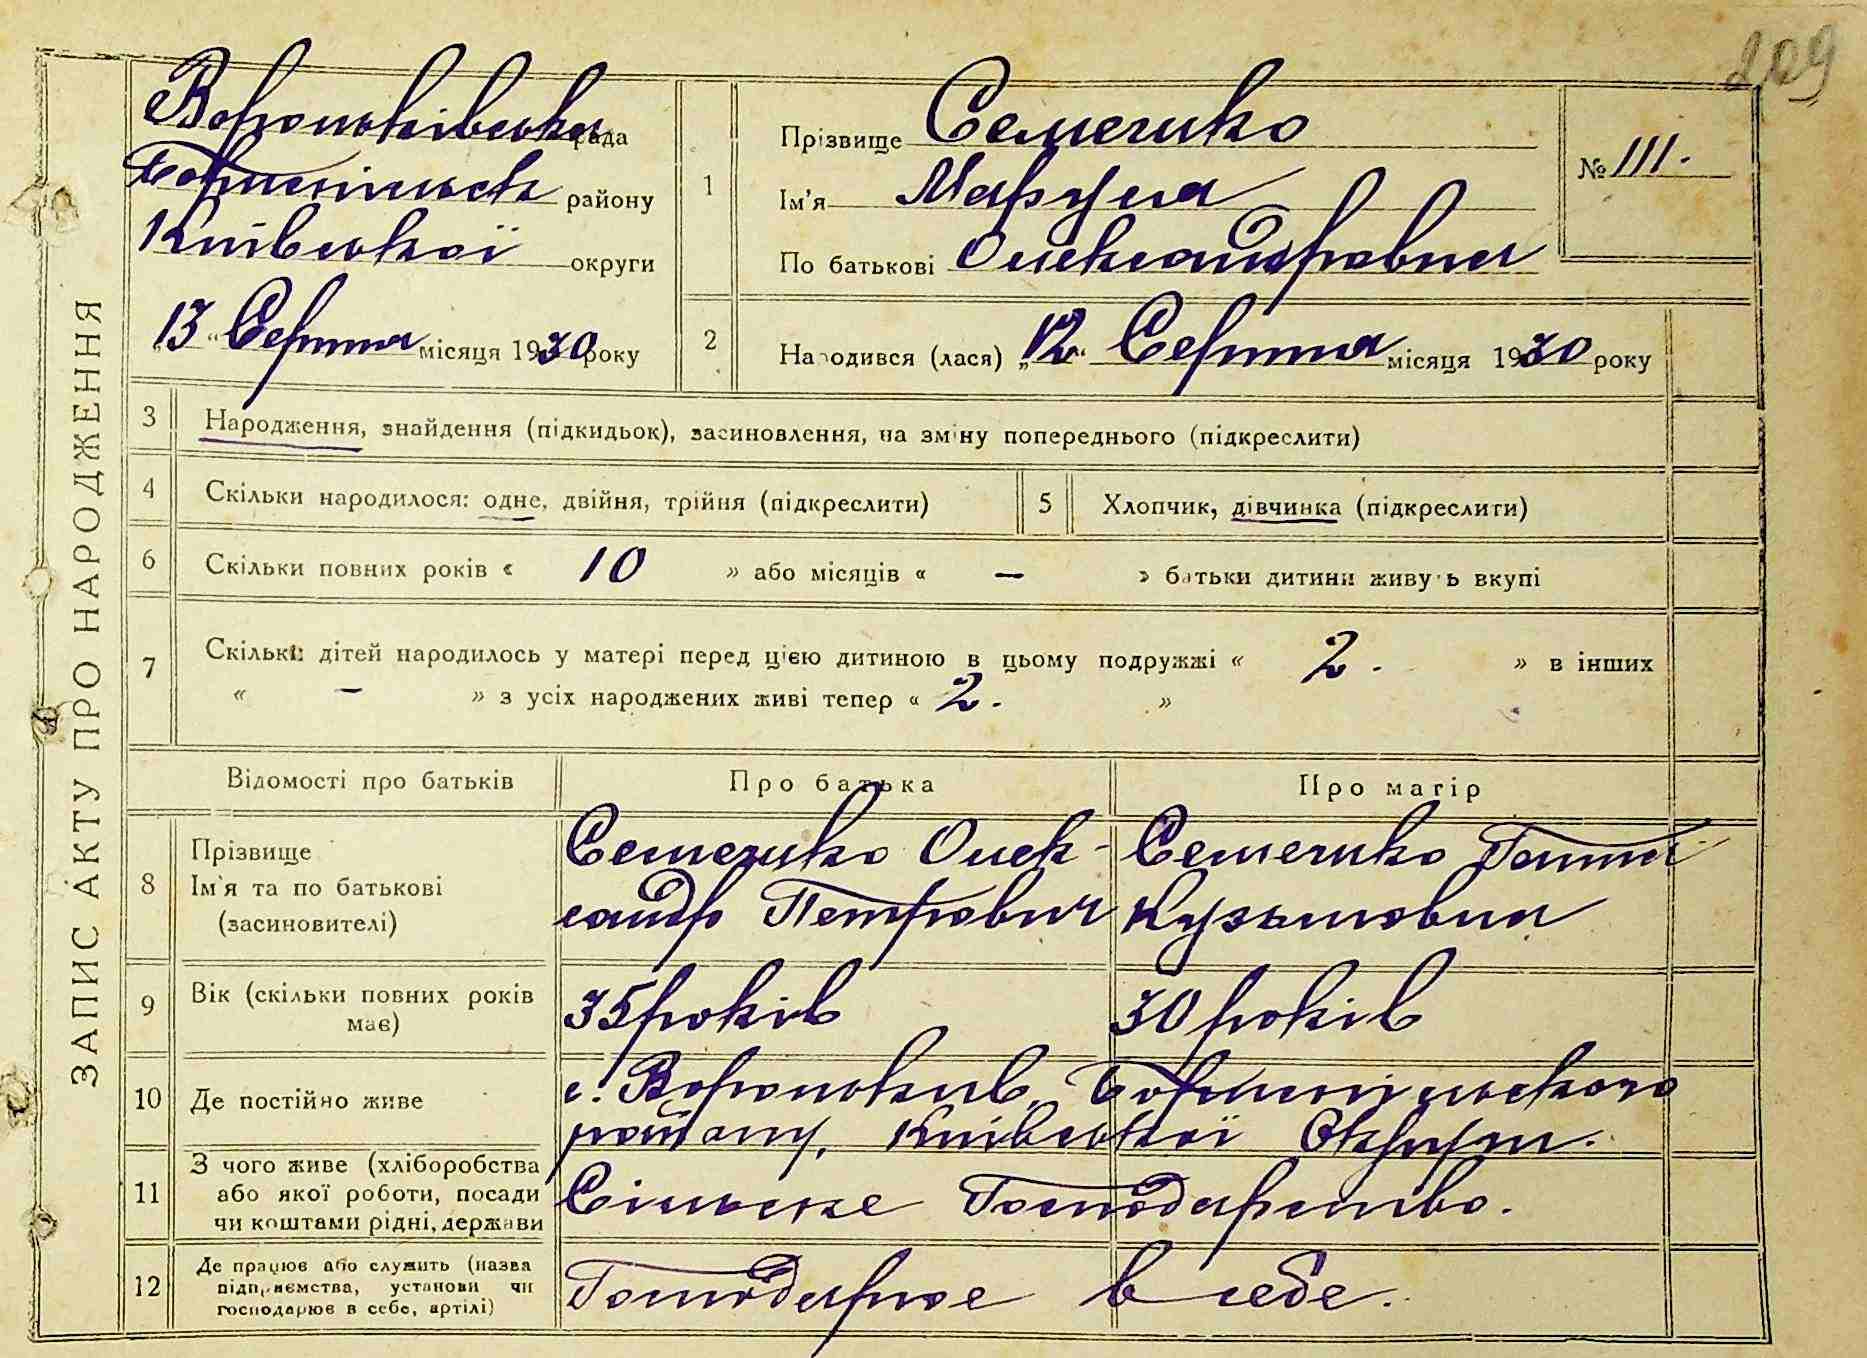 209
ЗАПИС АКТУ ПРО НАРОДЖЕННЯ
Вороньківська рада
Бориспільськ району
Київської округи
„13“ Серпня місяця 1930 року
1 Прізвище Семечико
Ім'я Маруся
По батькові Олександровна
№ 111.
2 Народився (лася) „12“ Серпня місяця 1930 року
3 Народження, знайдення (підкидьок), засиновлення, на зміну попереднього (підкреслити)
4 Скільки народилося: одне, двійня, трійня (підкреслити) 5 Хлопчик, дівчинка (підкреслити)
6 Скільки повних років « 10 » або місяців « — » батьки дитини живуть вкупі
7 Скільки дітей народилось у матері перед цією дитиною в цьому подружжі « 2. » в інших
« — » з усіх народжених живі тепер « 2. »
Відомості про батьків Про батька Про матір
8 Прізвище
Ім'я та по батькові
(засиновителі)
Семечико Олек-
сандр Петрович
Семечико Ганна
Кузьмовна
9 Вік (скільки повних років
має)
35 років 30 років
10 Де постійно живе
с. Вороньків, Бориспільского
району, Київської Округи.
11 З чого живе (хліборобства
або якої роботи, посади
чи коштами рідні, держави
Сільське Господарство.
12 Де працює або служить (назва
підприємства, установи чи
господарює в себе, артілі)
Господарює в себе.